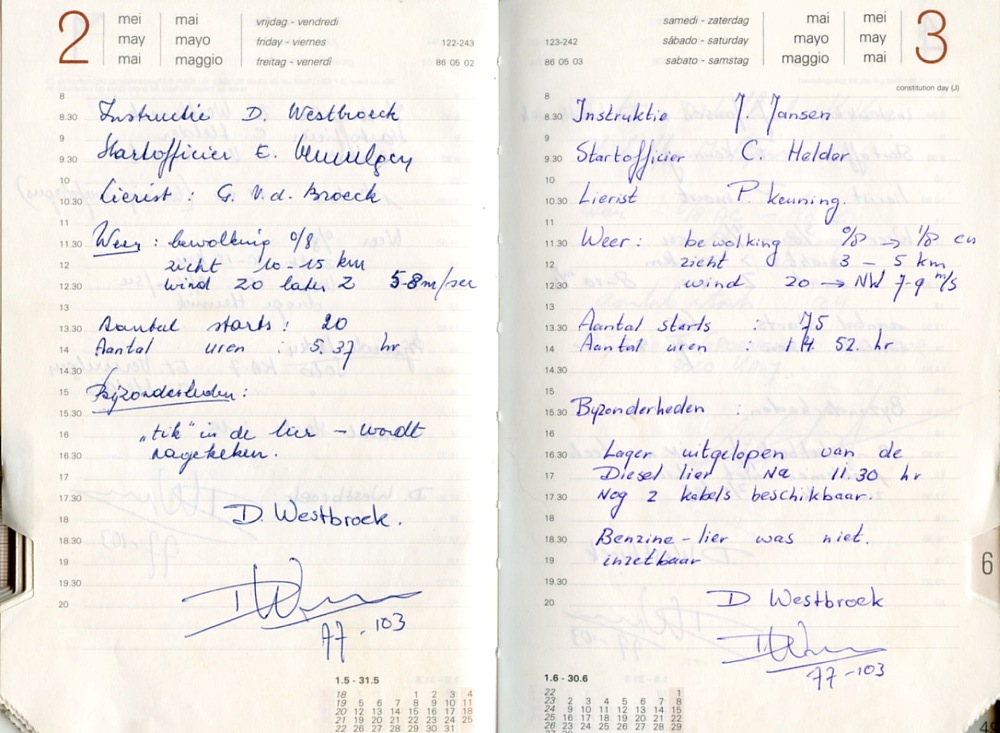 2
mei mai
may mayo
mai maggio
vrijdag - vendredi
friday - viernes
freitag - venerdì
122-243
86 05 02
8
8.30 Instructie D. Westbroeck
9
9.30 Startofficier E.
10
10.30 Lierist : G. v.d. Broeck
11
11.30 Weer : bewolking 0/8
12 zicht 10-15 km
12.30 wind 20 later 2 5-8 m/sec
13
13.30 Aantal starts : 20
14 Aantal uren : 5.37 hr
14.30
15 Bijzonderheden :
15.30
16 „tik" in de lier - wordt
16.30 nagekeken.
17
17.30
18 D. Westbroek.
18.30
19
19.30
20
77-103
1.5 - 31.5
18 1 2 3 4
19 5 6 7 8 9 10 11
20 12 13 14 15 16 17 18
21 19 20 21 22 23 24 25
22 26 27 28 29 30 31
123-242
86 05 03
samedi - zaterdag
sábado - saturday
sabato - samstag
mai mei
mayo may
maggio mai
3
constitution day (J)
8
8.30 Instruktie J. Jansen
9
9.30 Startofficier C. Helder
10
10.30 Lierist P. Keuning.
11
11.30 Weer : bewolking 0/8 → 1/8 cu
12 zicht 3 - 5 km
12.30 wind 20 → NW 7-9 m/s
13
13.30 Aantal starts : 75
14 Aantal uren : 14. 52. hr
14.30
15
15.30 Byzonderheden :
16
16.30 Lager uitgelopen van de
17 Diesel lier Na 11.30 hr
17.30 Nog 2 kabels beschikbaar.
18
18.30 Benzine - lier was niet.
19 inzetbaar
19.30
20 D Westbroek
77-103
1.6 - 30.6
22 1
23 2 3 4 5 6 7 8
24 9 10 11 12 13 14 15
25 16 17 18 19 20 21 22
26 23 24 25 26 27 28 29
6